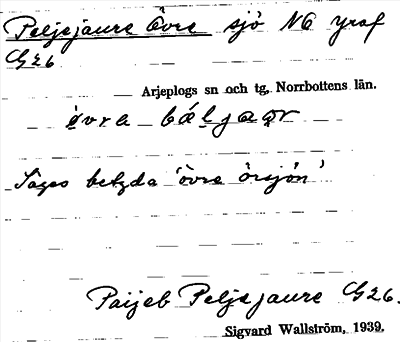 Peljejaure Övre sjö N6 yraf
G26
Arjeplogs sn och tg, Norrbottens län.
övra báljaor
Säges betyda 'övre örsjön'
Paijeb Peljejaure G26.
Sigvard Wallström, 1939.